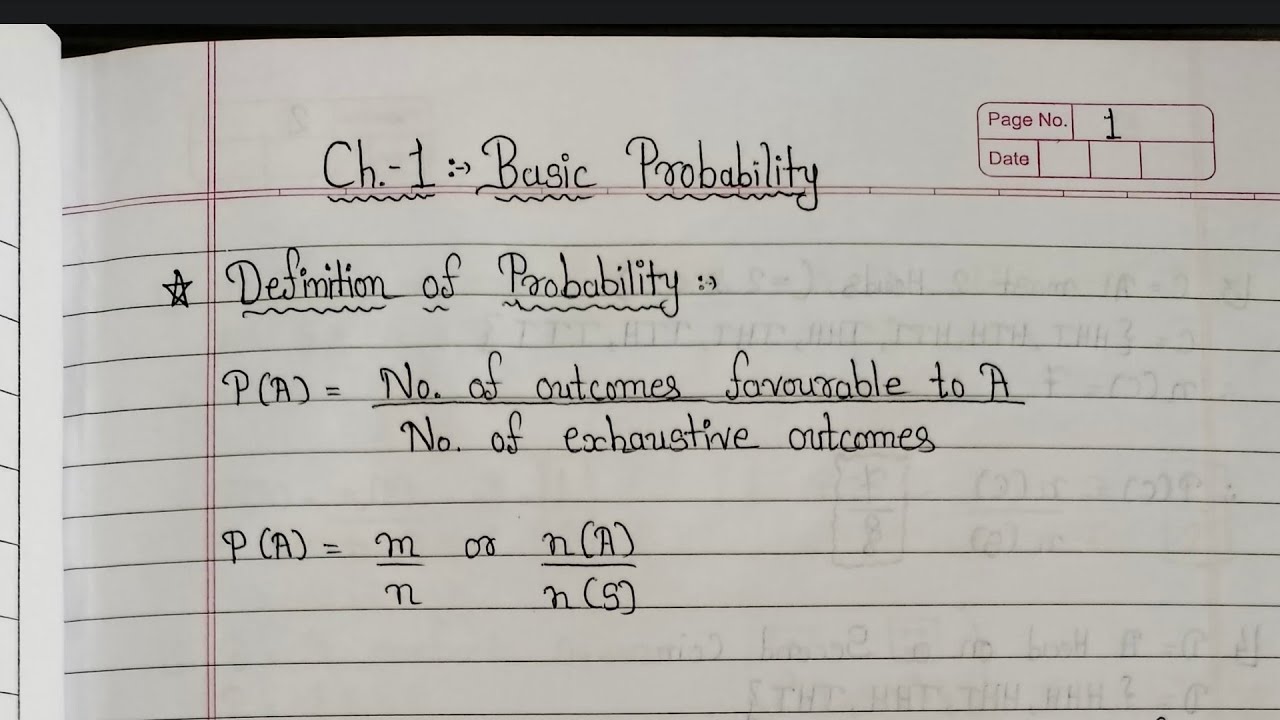 Page No. 1
Date
Ch.-1 :- Basic Probability
☆ Definition of Probability :-
P(A) = No. of outcomes favourable to A
No. of exhaustive outcomes
P(A) = m or n(A)
n n(S)